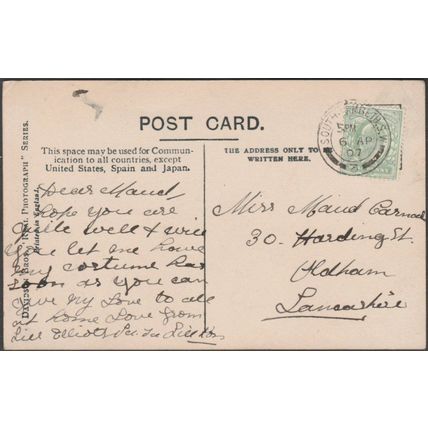 POST CARD.
This space may be used for Commun-
ication to all countries, except
United States, Spain and Japan.
THE ADDRESS ONLY TO BE
WRITTEN HERE.
DAVIDSON BROS.' "REAL PHOTOGRAPH" SERIES.
Printed in England.
SOUTH S.W.
5 PM
6 AP
07
Dear Maud
hope you are
quite well & will
you let me have
my costume
soon as you can
Give My Love to all
at home Love from
Miss Maud
30. Harding St.
Oldham
Lancashire